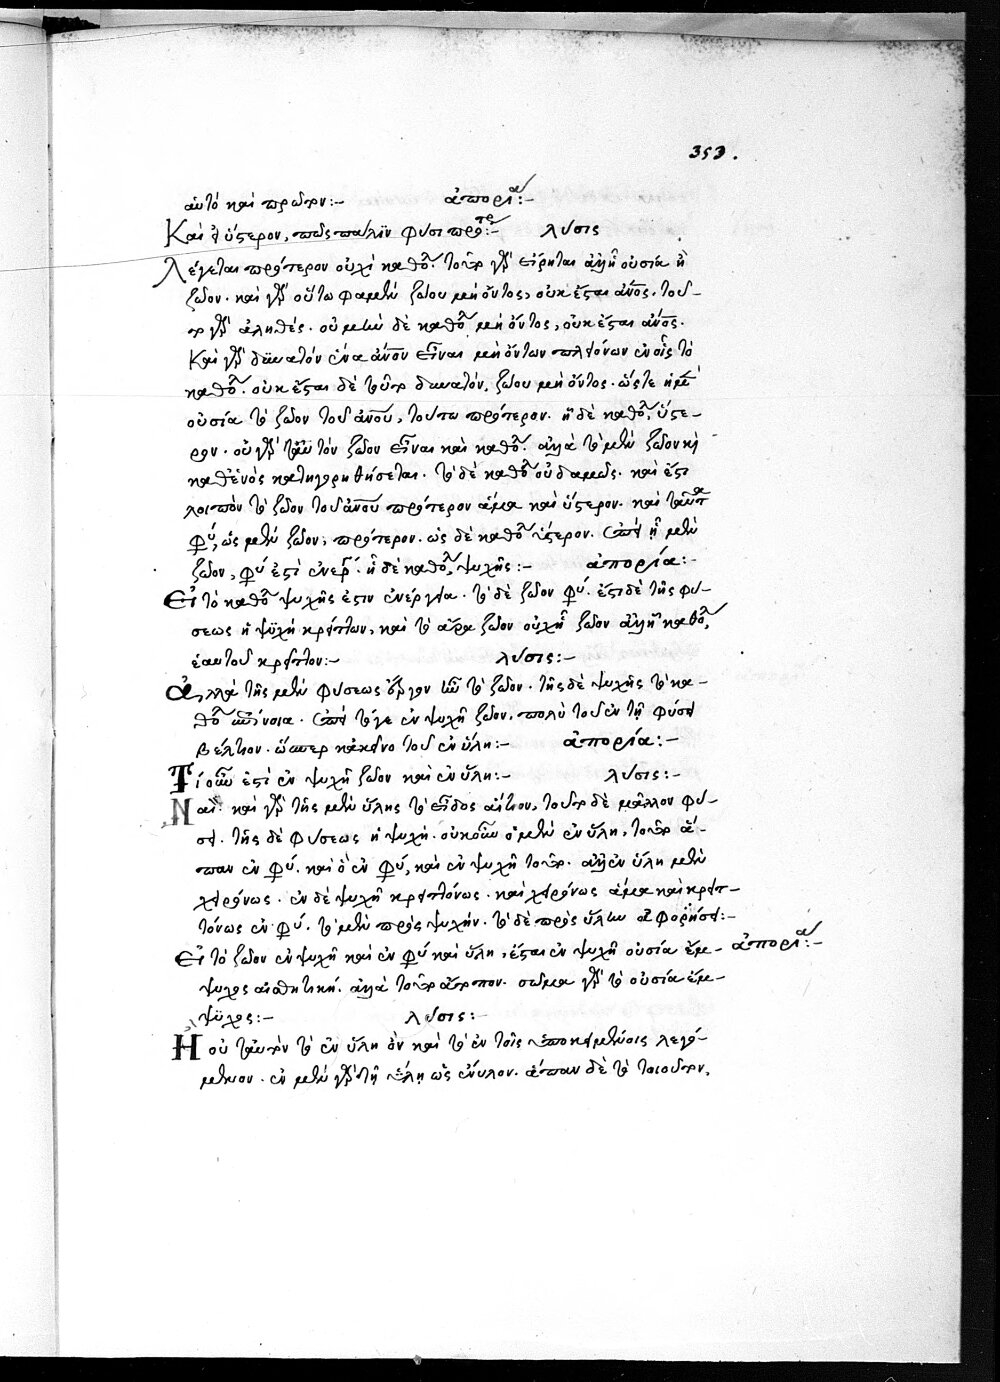 353.
αὐτό καὶ πρῶτον:— ἀπορία:—
Καὶ ὕστερον, πῶς πάλιν φύσει πρότερον:— λύσις
Λέγεται πρότερον οὐχὶ καθὸ. τοῦτο γὰρ εἴρηται ἀλλ' ἢ οὐσία ἢ
ζῶον. καὶ γὰρ οὕτω φαμὲν ζώου μὴ ὄντος, οὐκ ἔσται ἄνος. τοῦ-
το γὰρ ἀληθές. οὐ μὲν δὲ καθὸ μὴ ὄντος, οὐκ ἔσται ἄνος.
Καὶ γὰρ δυνατόν ἕνα ἄνον εἶναι μὴ ὄντων πλειόνων ἐν οἷς τὸ
καθὸ. οὐκ ἔσται δὲ τοῦτο δυνατόν, ζώου μὴ ὄντος. ὥστε ἡ μὲν
οὐσία τὸ ζῶον τοῦ ἄνου, τούτω πρότερον. ἡ δὲ καθὸ, ὕστε-
ρον. οὐ γὰρ ταυτὸν ζῶον εἶναι καὶ καθὸ. ἀλλὰ τὸ μὲν ζῶον καὶ
καθ' ἑνὸς κατηγορηθήσεται. τὸ δὲ καθὸ οὐδαμῶς. καὶ ἔστι
λοιπὸν τὸ ζῶον τοῦ ἄνου πρότερον ἅμα καὶ ὕστερον. καὶ ταῦτα
φύ, ὡς μὲν ζῶον, πρότερον. ὡς δὲ καθὸ ὕστερον. ἐπεὶ ᾗ μὲν
ζῶον, φύ ἐστὶ ἐνερ. ᾗ δὲ καθὸ, ψυχῆς:— ἀπορία:—
Εἰ τὸ καθὸ ψυχῆς ἐστιν ἐνέργεια. τὸ δὲ ζῶον φύ. ἔστι δὲ τῆς φύ-
σεως ἡ ψυχὴ κρείττων, καὶ τὸ ἄρα ζῶον οὐχ ᾗ ζῶον ἀλλ' ᾗ καθὸ,
ἑαυτοῦ κρεῖττον:— λύσις:—
Ἀλλὰ τῆς μὲν φύσεως ἔργον ἦν τὸ ζῶον. τῆς δὲ ψυχῆς τὸ κα-
θὸ ἐπίνοια. ἐπεὶ τό γε ἐν ψυχῇ ζῶον, πολὺ τοῦ ἐν τῇ φύσει
βέλτιον. ὥσπερ κἀκεῖνο τοῦ ἐν ὕλη:— ἀπορία:—
Τί οὖν ἐστὶ ἐν ψυχῇ ζῶον καὶ ἐν ὕλη:— λύσις:—
Ναί. καὶ γὰρ τῆς μὲν ὕλης τὸ εἶδος αἴτιον, τοῦτο δὲ μᾶλλον φύ-
σει. τῆς δὲ φύσεως ἡ ψυχή. οὐκοῦν ὁ μὲν ἐν ὕλη, τοῦτο ἅ-
παν ἐν φύ. καὶ ὃ ἐν φύ, καὶ ἐν ψυχῇ τοῦτο. ἀλλ' ἐν ὕλη μὲν
χειρόνως. ἐν δὲ ψυχῇ κρειττόνως. καὶ χειρόνως ἅμα καὶ κρειτ-
τόνως ἐν φύ. τὸ μὲν πρὸς ψυχήν. τὸ δὲ πρὸς ὕλην ἀφορήσει:—
Εἰ τὸ ζῶον ἐν ψυχῇ καὶ ἐν φύ καὶ ὕλη, ἔσται ἐν ψυχῇ οὐσία ἔμ- ἀπορία:—
ψυχος αἰσθητική. ἀλλὰ τοῦτο ἄτοπον. σῶμα γὰρ τὸ οὐσία ἔμ-
ψυχος:— λύσις:—
Ἢ οὐ ταυτὸν τὸ ἐν ὕλη ὂν καὶ τὸ ἐν τοῖς ὑποκειμένοις λεγό-
μενον. ἐν μὲν γὰρ τῇ ὕλη ὡς ἔνυλον. ἅπαν δὲ τὸ τοιοῦτον,